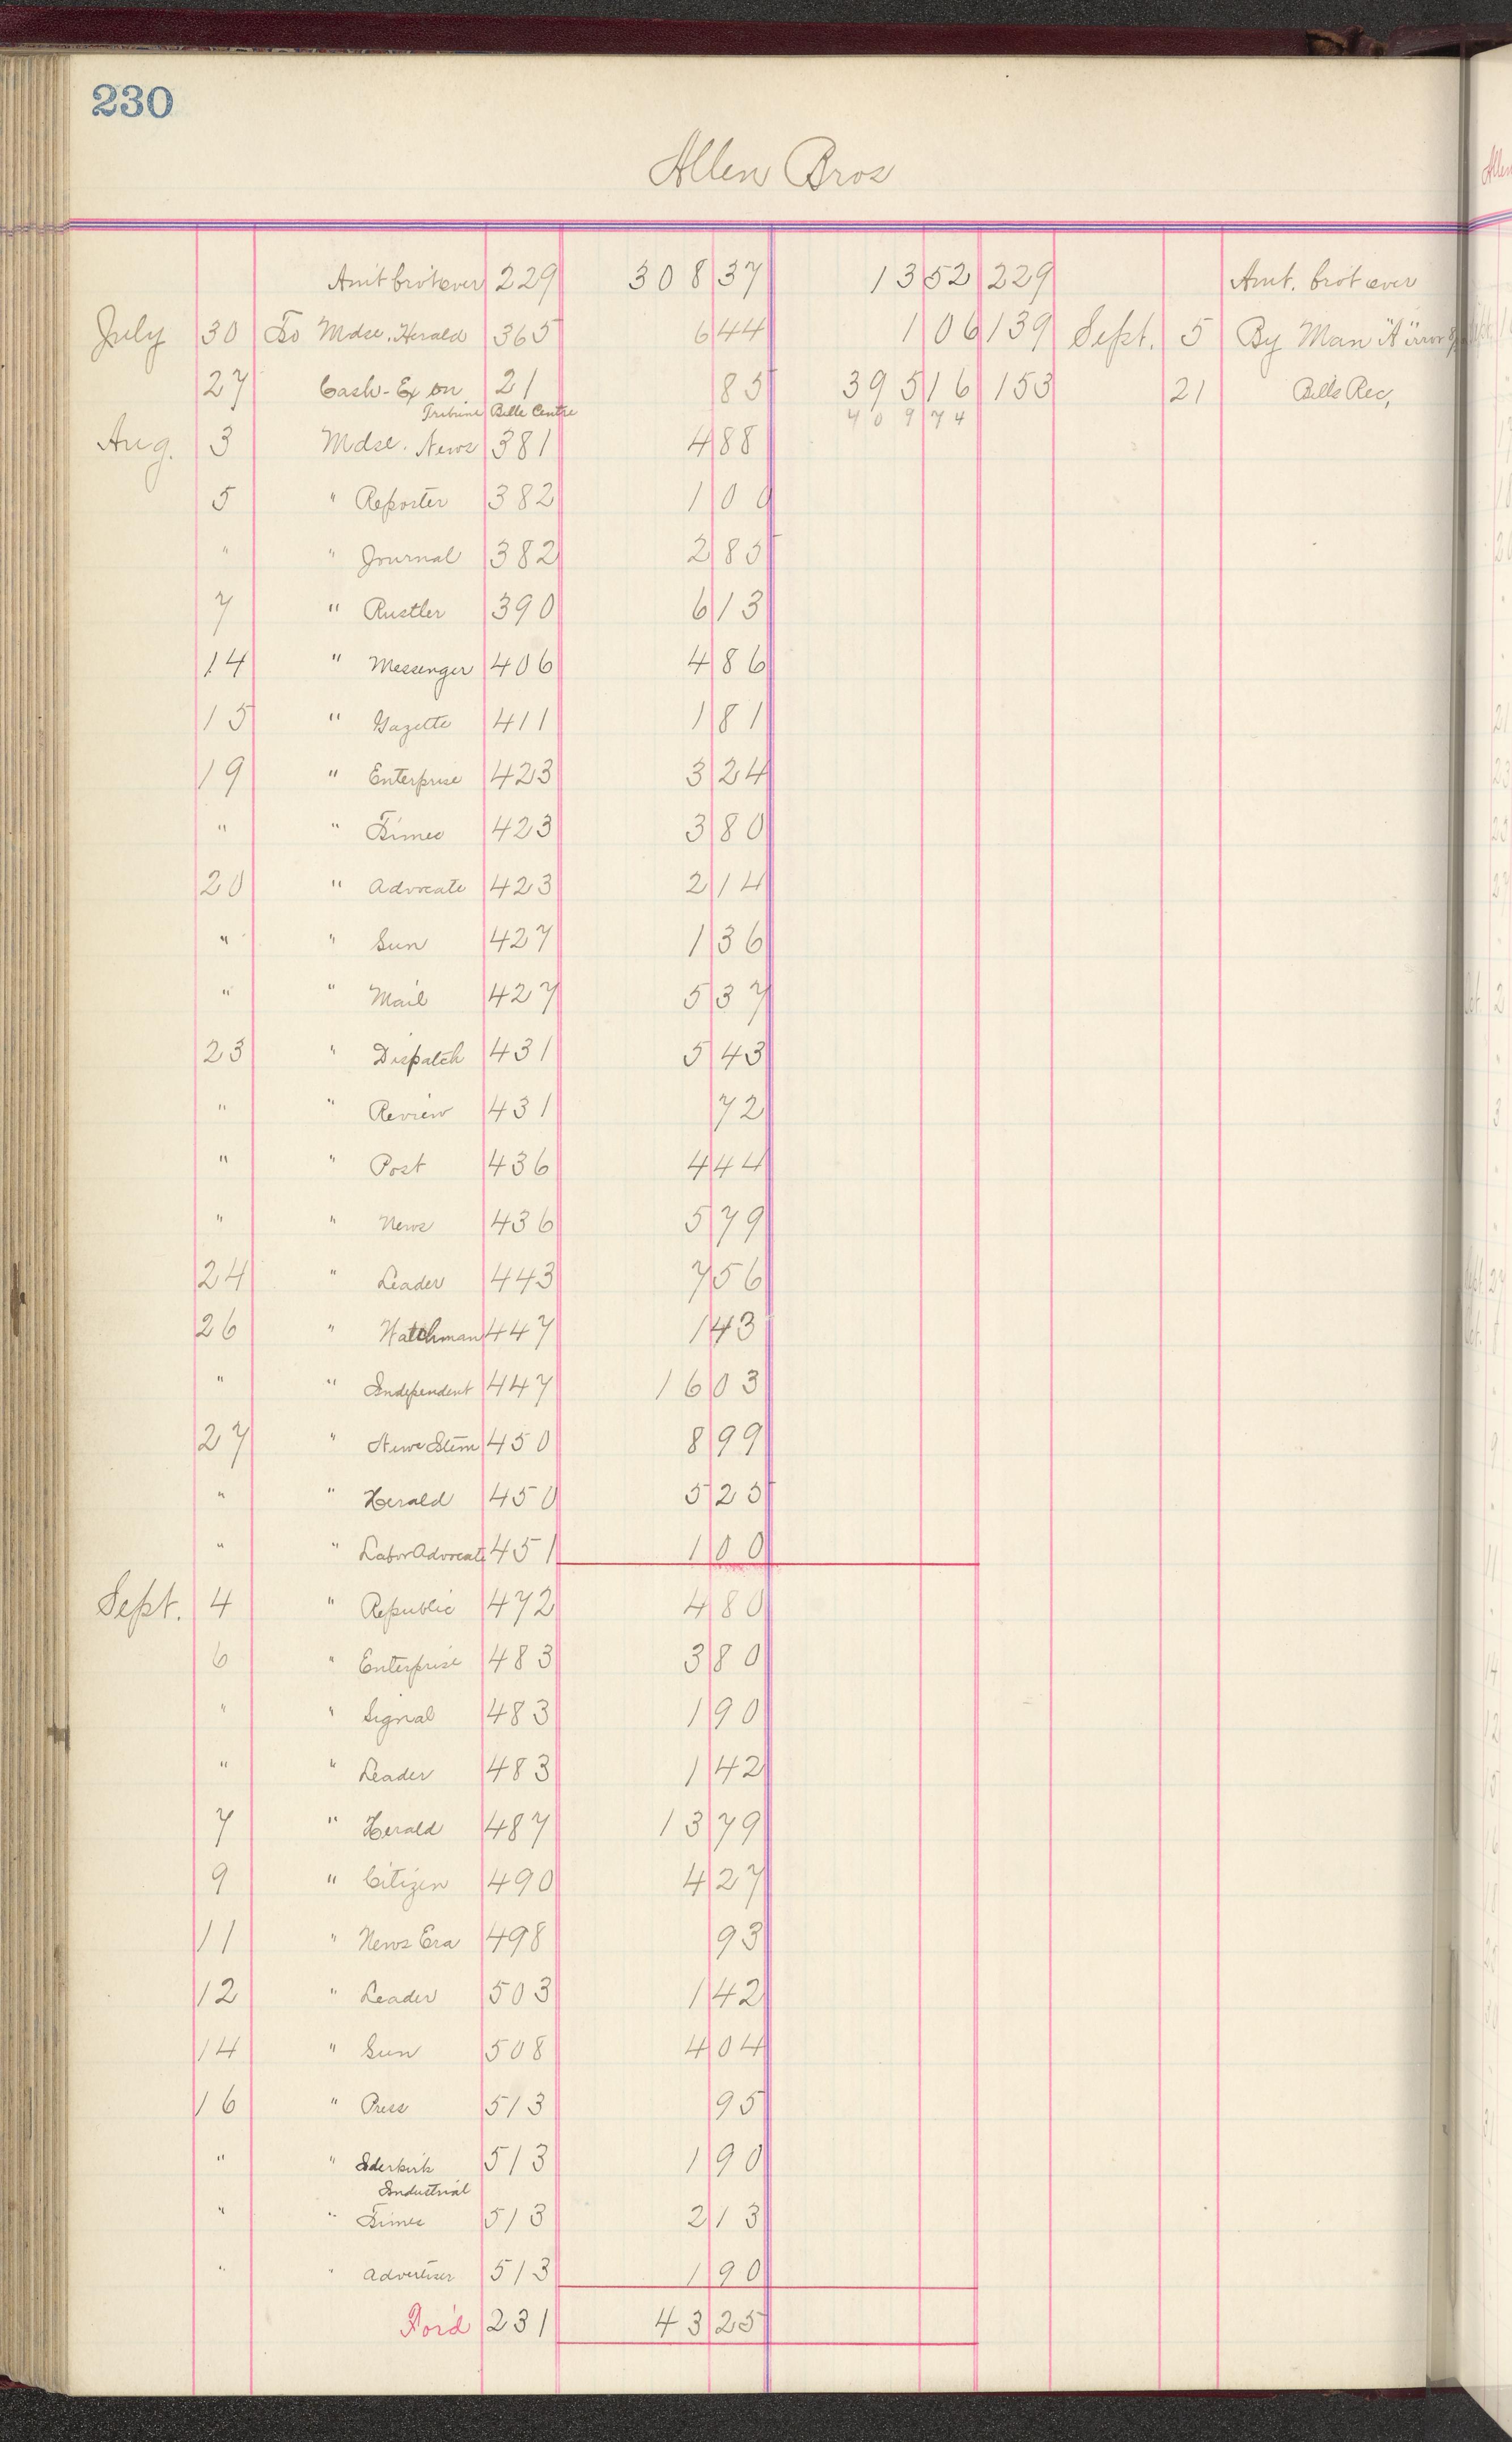 230
Allen Bros
Amt brot over 229 308 37 13 52 229 Amt. brot over
July 30 To Mdse. Herald 365 6 44 1 06 139 Sept. 5 By Man
27 Cash-Ex on 21 85 395 16 153 21 Bills Rec,
Tribune Belle Centre 409 74
Aug. 3 Mdse. News 381 4 88
5 " Reporter 382 1 00
" " Journal 382 2 85
7 " Rustler 390 6 13
14 " Messenger 406 4 86
15 " Gazette 411 1 81
19 " Enterprise 423 3 24
" " Times 423 3 80
20 " Advocate 423 2 14
" " Sun 427 1 36
" " Mail 427 5 37
23 " Dispatch 431 5 43
" " Review 431 72
" " Post 436 4 44
" " News 436 5 79
24 " Leader 443 7 56
26 " Watchman 447 1 43
" " Independent 447 16 03
27 " News 450 8 99
" " Herald 450 5 25
" " Labor Advocate 451 1 00
Sept. 4 " Republic 472 4 80
6 " Enterprise 483 3 80
" " Signal 483 1 90
" " Leader 483 1 42
7 " Herald 487 13 79
9 " Citizen 490 4 27
11 " News Era 498 93
12 " Leader 503 1 42
14 " Sun 508 4 04
16 " Press 513 95
" " 513 1 90
Industrial
" " Times 513 2 13
" " Advertiser 513 1 90
For'd 231 43 25